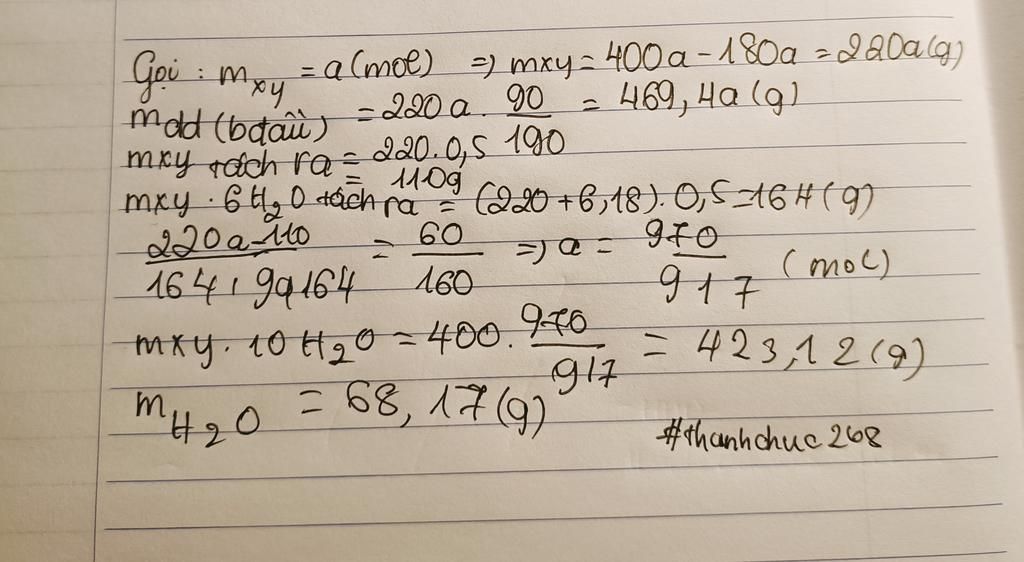 Gọi : m_xy = a(mol) => mxy = 400a - 180a = 220a(g)
m_dd (bđầu) = 220a . 90/190 = 469,4a (g)
mxy tách ra = 220.0,5
= 110g
mxy . 6H₂O tách ra = (220+6,18). 0,5 = 164 (g)
220a-110 / 164,9a164 = 60/160 => a = 970/917 (mol)
mxy . 10 H₂O = 400 . 970/917 = 423,12 (g)
m_H₂O = 68,17(g)
#thanhchuc268